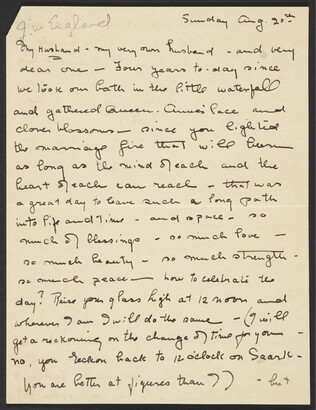 in England
Sunday Aug. 20th
My Husband - my very own husband - and very
dear one - Four years to-day since
we took our bath in the little waterfall
and gathered Queen Anne's lace and
clover blossoms - since you lighted
the marriage fire that will burn
as long as the mind of each and the
heart of each can reach - that was
a great day to have such a long path
into life and time - and space - so
much of blessings - so much love -
so much beauty - so much strength -
so much peace - how to celebrate the
day? Raise your glass high at 12 noon and
wherever I am I will do the same - (I will
get a reckoning on the change of time for you -
no, you reckon back to 12 o'clock on Saark -
you are better at figures than I) - but